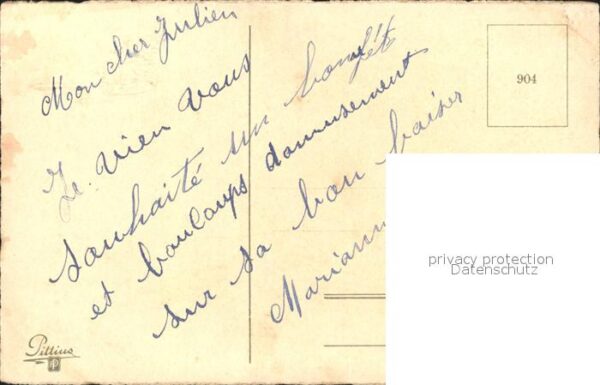 Mon cher Julien
Je vien vous
souhaité un bonfête
et boucoups damusement
sur sa bon baiser
Mariann
904
privacy protection
Datenschutz
Pittius